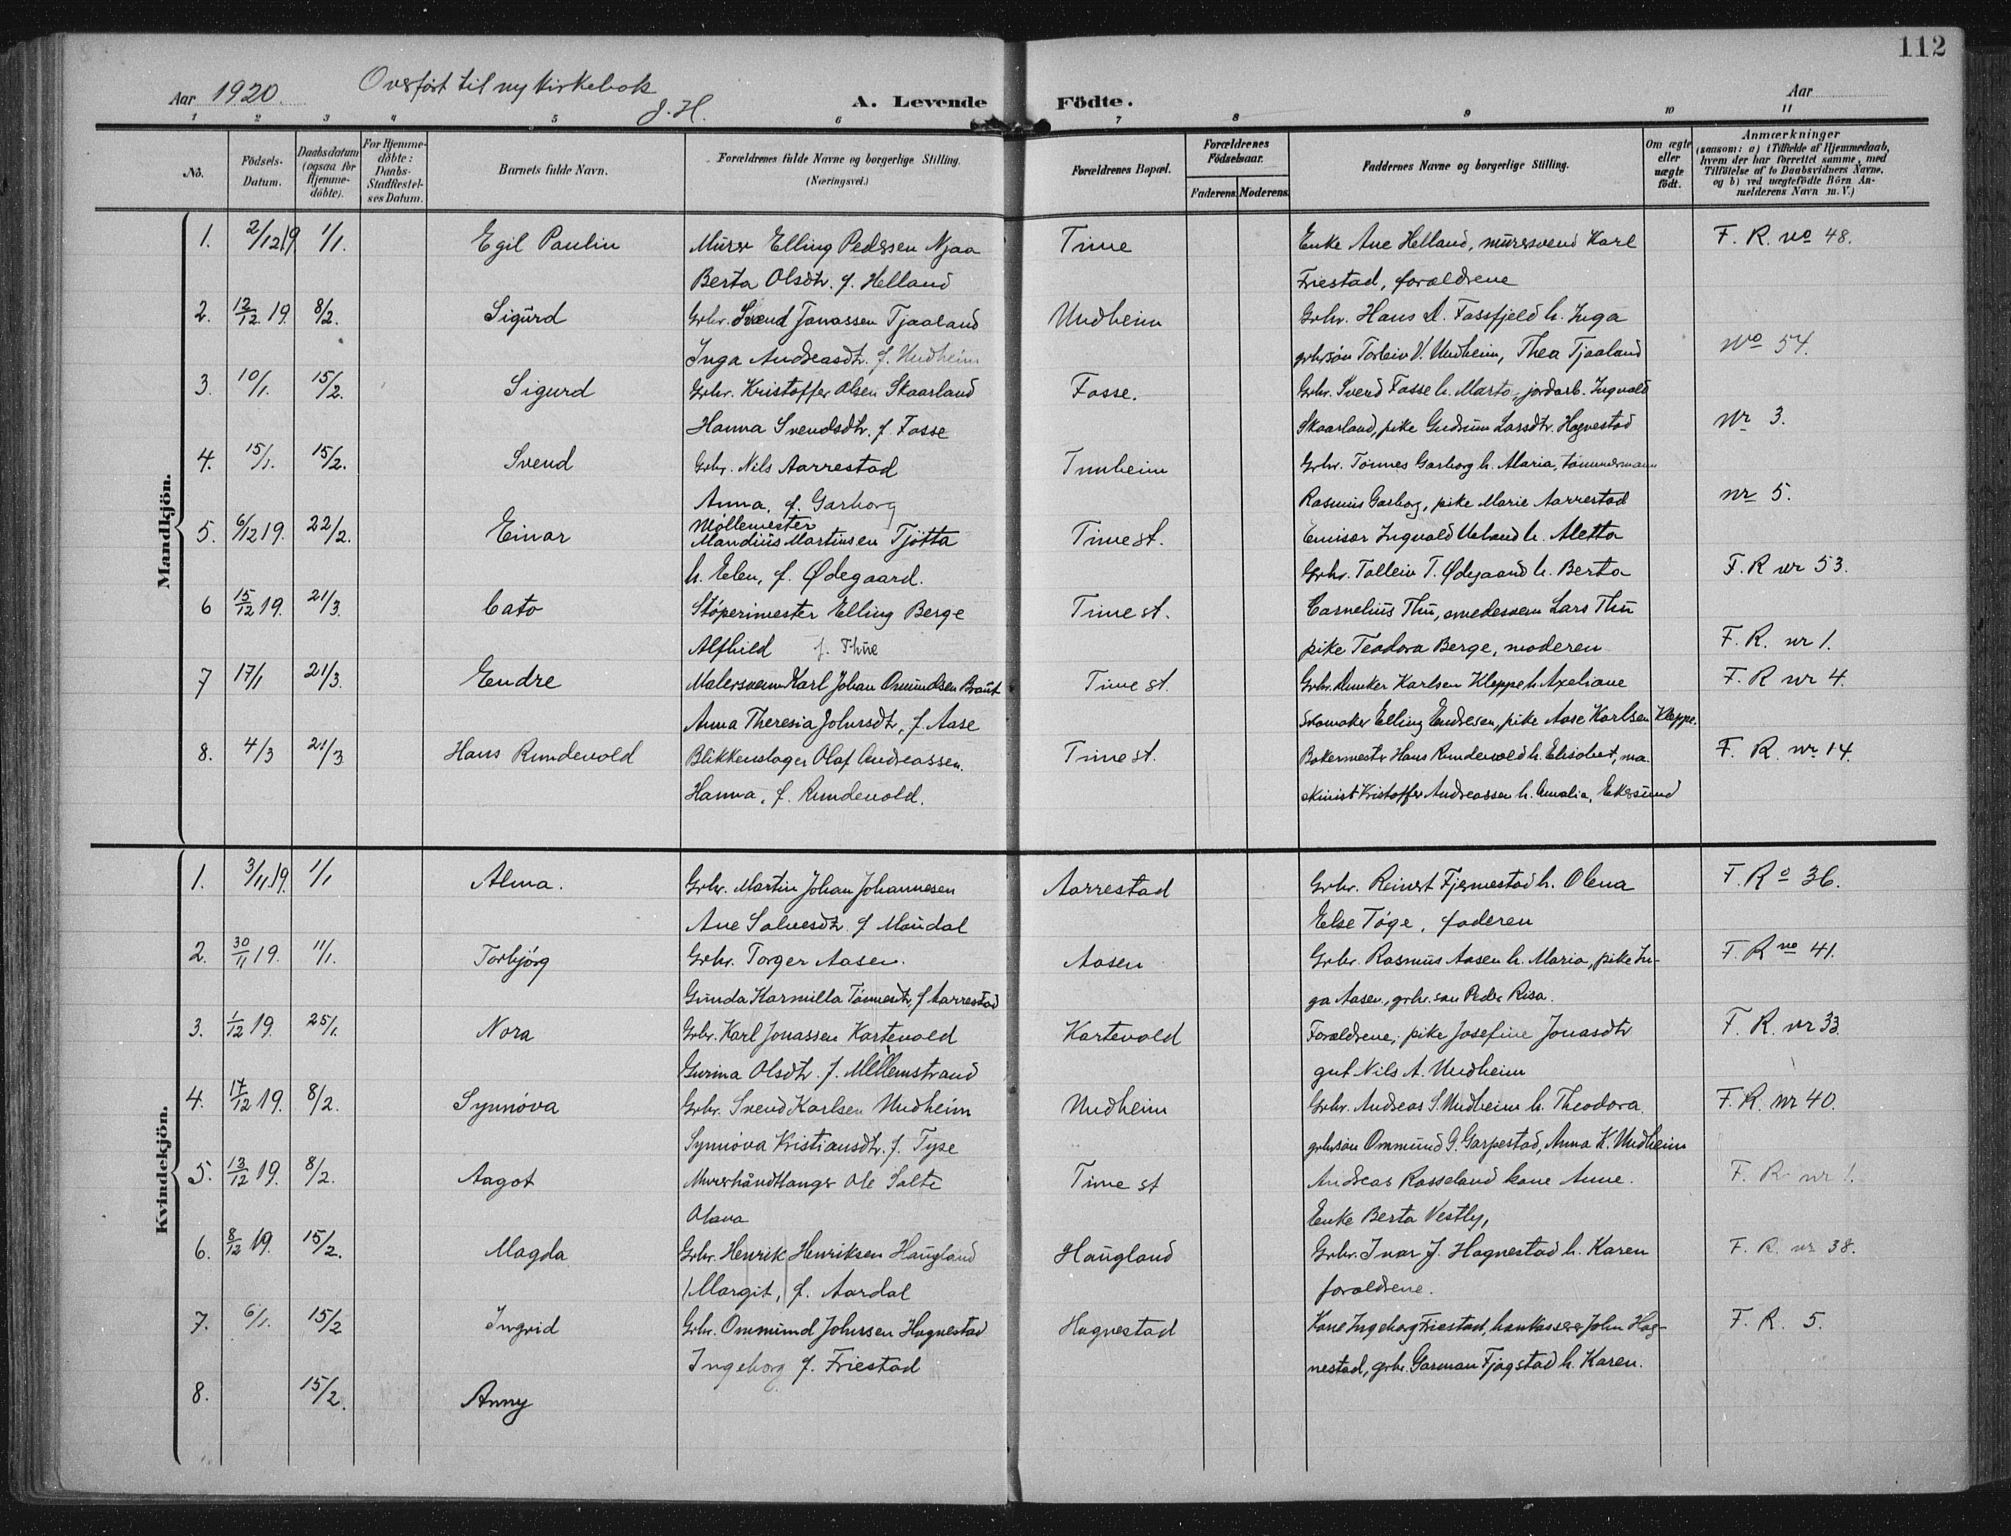 112
Aar 1920. Overført til ny kirkebok J. H.
A. Levende Födte.
Aar
1 2 3 4 5 6 7 8 9 10 11
No. Födsels-Datum. Daabsdatum (ogsaa for Hjemme-döbte). For Hjemme-döbte: Daabs-Stadfæstel-ses Datum. Barnets fulde Navn. Forældrenes fulde Navne og borgerlige Stilling. (Næringsvei.) Forældrenes Bopæl. Forældrenes Födselsaar. Faderens Moderens. Faddernes Navne og borgerlige Stilling. Om ægte eller uægte födt. Anmærkninger (saasom: a) i Tilfælde af Hjemmedaab, hvem der har forrettet samme, med Tilföielse af to Daabsvidners Navne, og b) ved uægtefödte Börn An-melderens Navn m. V.)
Mandkjön.
1. 2/12 19 1/1. Egil Paulin Murer Elling Pedersen Njaa Time Enke Ane Helland, murersvend Karl F. R. no 48.
Berta Olsdtr. f. Helland Friestad, forældrene
2. 12/12 19. 8/2. Sigurd Grbr. Svend Jonassen Tjaaland Undheim Grbr. Hans A. Fossfjeld h. Inga
Inga Andreasdtr. f. Undheim grbrsøn Torleiv V. Undheim, Thea Tjaaland No 54.
3. 10/1. 15/2. Sigurd Grbr. Kristoffer Olsen Skaarland Fosse. Grbr. Svend Fosse h. Marta, jordarb. Ingvald
Hanna Svendsdtr. f. Fosse Skaarland, pike Gudrun Larsdtr. Hognestad Nr 3.
4. 15/1. 15/2. Svend Grbr. Nils Aarrestad Tunheim Grbr. Tønnes Garborg h. Maria, tømmermann
Anna, f. Garborg Rasmus Garborg, pike Marie Aarrestad nr 5.
5. 6/12 19. 22/2. Einar Møllemester Mandius Martinsen Tjøtta Time st. Emisær Ingvald Ueland h. Aletta
h. Elen, f. Ødegaard. Grbr. Tolleiv T. Ødegaard h. Berta F. R nr 53.
6 15/12 19. 21/3. Cato Støperimester Elling Berge Time st. Cornelius Thu, smedesvem Lars Thu
Alfhild f. Thue pike Teodora Berge, moderen F. R. nr 1.
7 17/1 21/3. Endre Malersvenn Karl Johan Omundsen Braut Time st. Grbr. Dunker Karlsen Kleppe h. Axeliane F. R nr 4.
Anna Theresia Johnsdtr, f. Aase Skomaker Elling Endresen, pike Aase Karlsen Kleppe.
8. 4/3 21/3 Hans Rundevold Blikkenslager Olaf Andreassen. Time st. Bakermester Hans Rundevold h. Elisabet, ma- F. R. nr 14.
Hanna, f. Rundevold. skinist Kristoffer Andreassen h. Amalia, Ekersund
Kvindekjön.
1. 3/11 19. 1/1 Alma. Grbr. Martin Johan Johannesen Aarrestad Grbr. Reinert Fjermestad h. Olena F. R o 36.
Ane Salvesdtr. f Maudal Else Tøge, faderen
2. 30/11 19. 11/1. Torbjørg Grbr. Torger Aasen. Aasen Grbr. Rasmus Aasen h. Maria, pike In- F. R no 41.
Gunda Karmilla Tønnesdtr, f Aarrestad ga Aasen, grbr. søn Peder Risa.
3. 1/12 19. 25/1. Nora Grbr. Karl Jonassen Kartevold Kartevold Forældrene, pike Josefine Jonasdtr F. R. nr 33
Gurina Olsdtr. f. Mellemstrand gut Nils A. Undheim
4. 17/12 19. 8/2. Synnøva Grbr. Svend Karlsen Undheim Undheim Grbr. Andreas S. Undheim h. Theodora. F. R. nr 40.
Synnøva Kristiansdtr. f. Tyse grbrsøn Ommund G. Garpestad, Anna K. Undheim
5. 13/12 19. 8/2. Aagot Murerhåndtlanger Ole Salte Time st Andreas Rosseland kone Anne. F. R. nr 1.
Olava Enke Berta Vestly,
6. 8/12 19. 15/2. Magda Grbr. Henrik Henriksen Haugland Haugland Grbr. Ivar J. Hognestad h. Karen F. R. nr 38.
Margit, f. Aardal forældrene.
7. 6/1. 15/2 Ingrid Grbr. Ommund Johnsen Hognestad Hognestad Kone Ingeborg Friestad, bankkasserer John Hog- F. R. 5.
Ingeborg f. Friestad nestad, grbr. Garman Fjogstad h. Karen.
8. 15/2. Anny